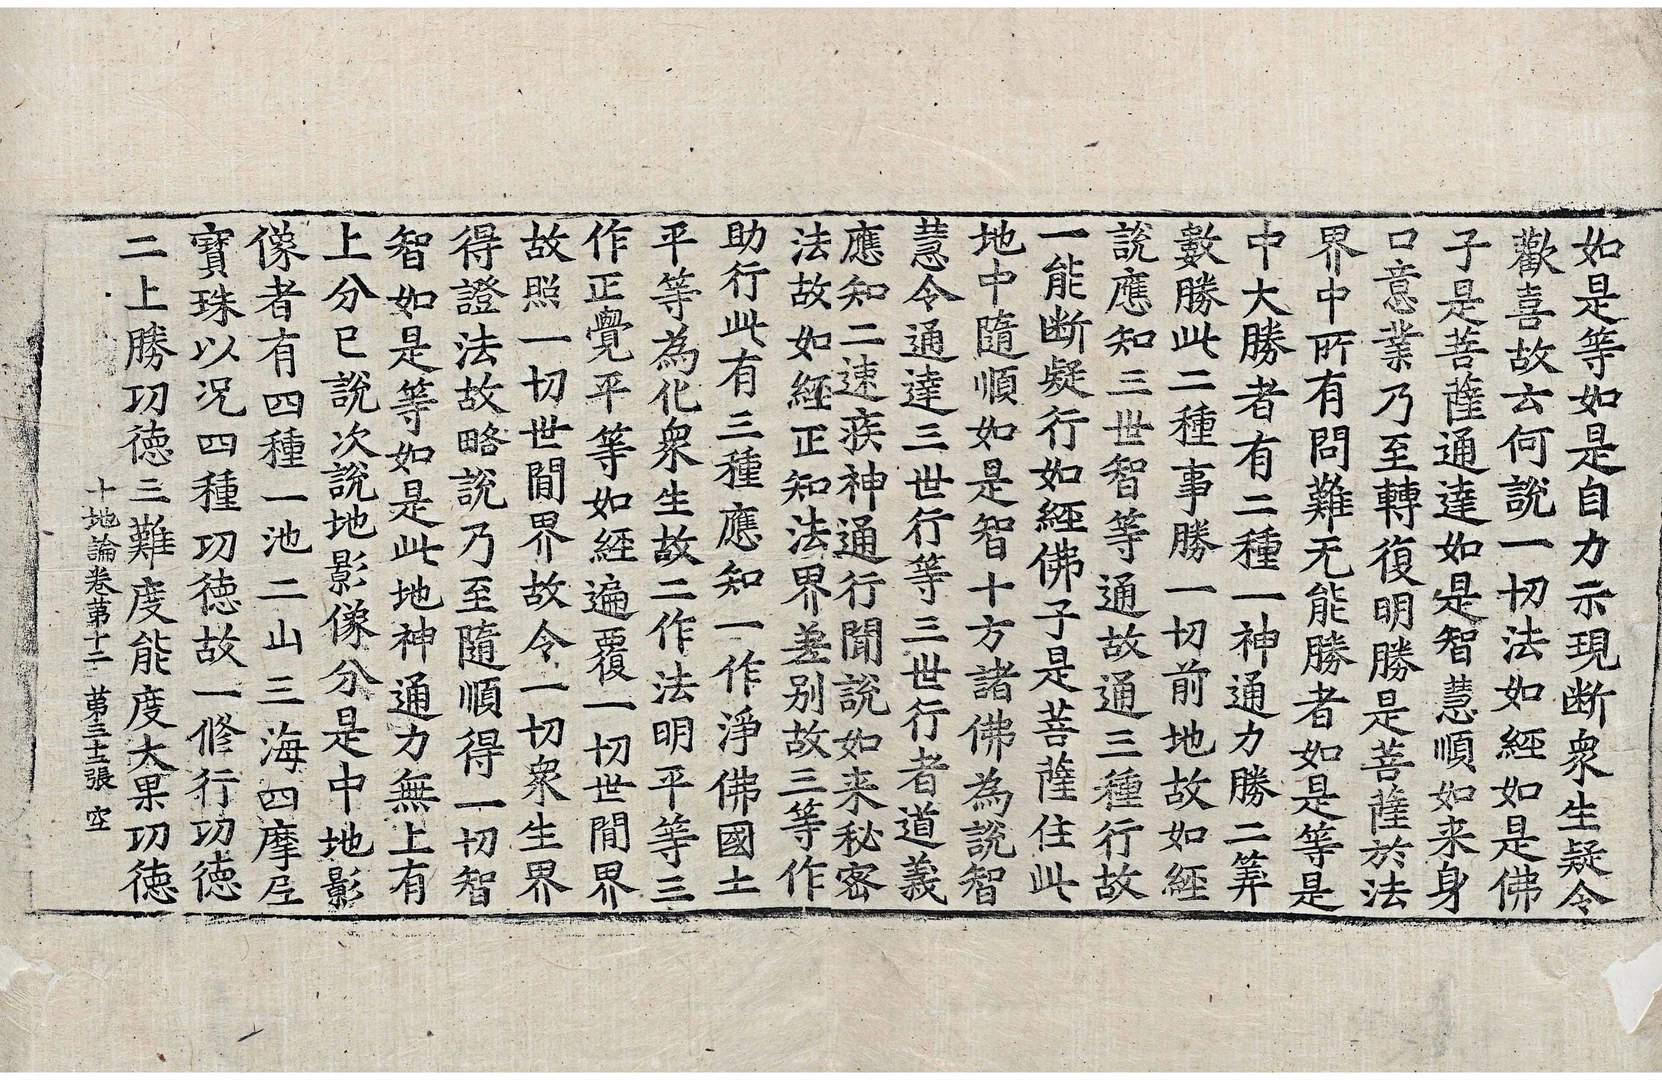 如是等如是自力示現断衆生疑令
歡喜故云何說一切法如經如是佛
子是菩薩通達如是智慧順如来身
口意業乃至轉復明勝是菩薩於法
界中所有問難无能勝者如是等是
中大勝者有二種一神通力勝二筭
數勝此二種事勝一切前地故如經
說應知三世智等通故通三種行故
一能断疑行如經佛子是菩薩住此
地中隨順如是智十方諸佛為說智
慧令通達三世行等三世行者道義
應知二速疾神通行聞說如来秘密
法故如經正知法界差别故三等作
助行此有三種應知一作淨佛國土
平等為化衆生故二作法明平等三
作正覺平等如經遍覆一切世間界
故照一切世間界故令一切衆生界
得證法故略說乃至隨順得一切智
智如是等如是此地神通力無上有
上分已說次說地影像分是中地影
像者有四種一池二山三海四摩尼
寶珠以况四種功徳故一修行功徳
二上勝功徳三難度能度大果功徳
十地論卷苐十二 苐三十二張 空